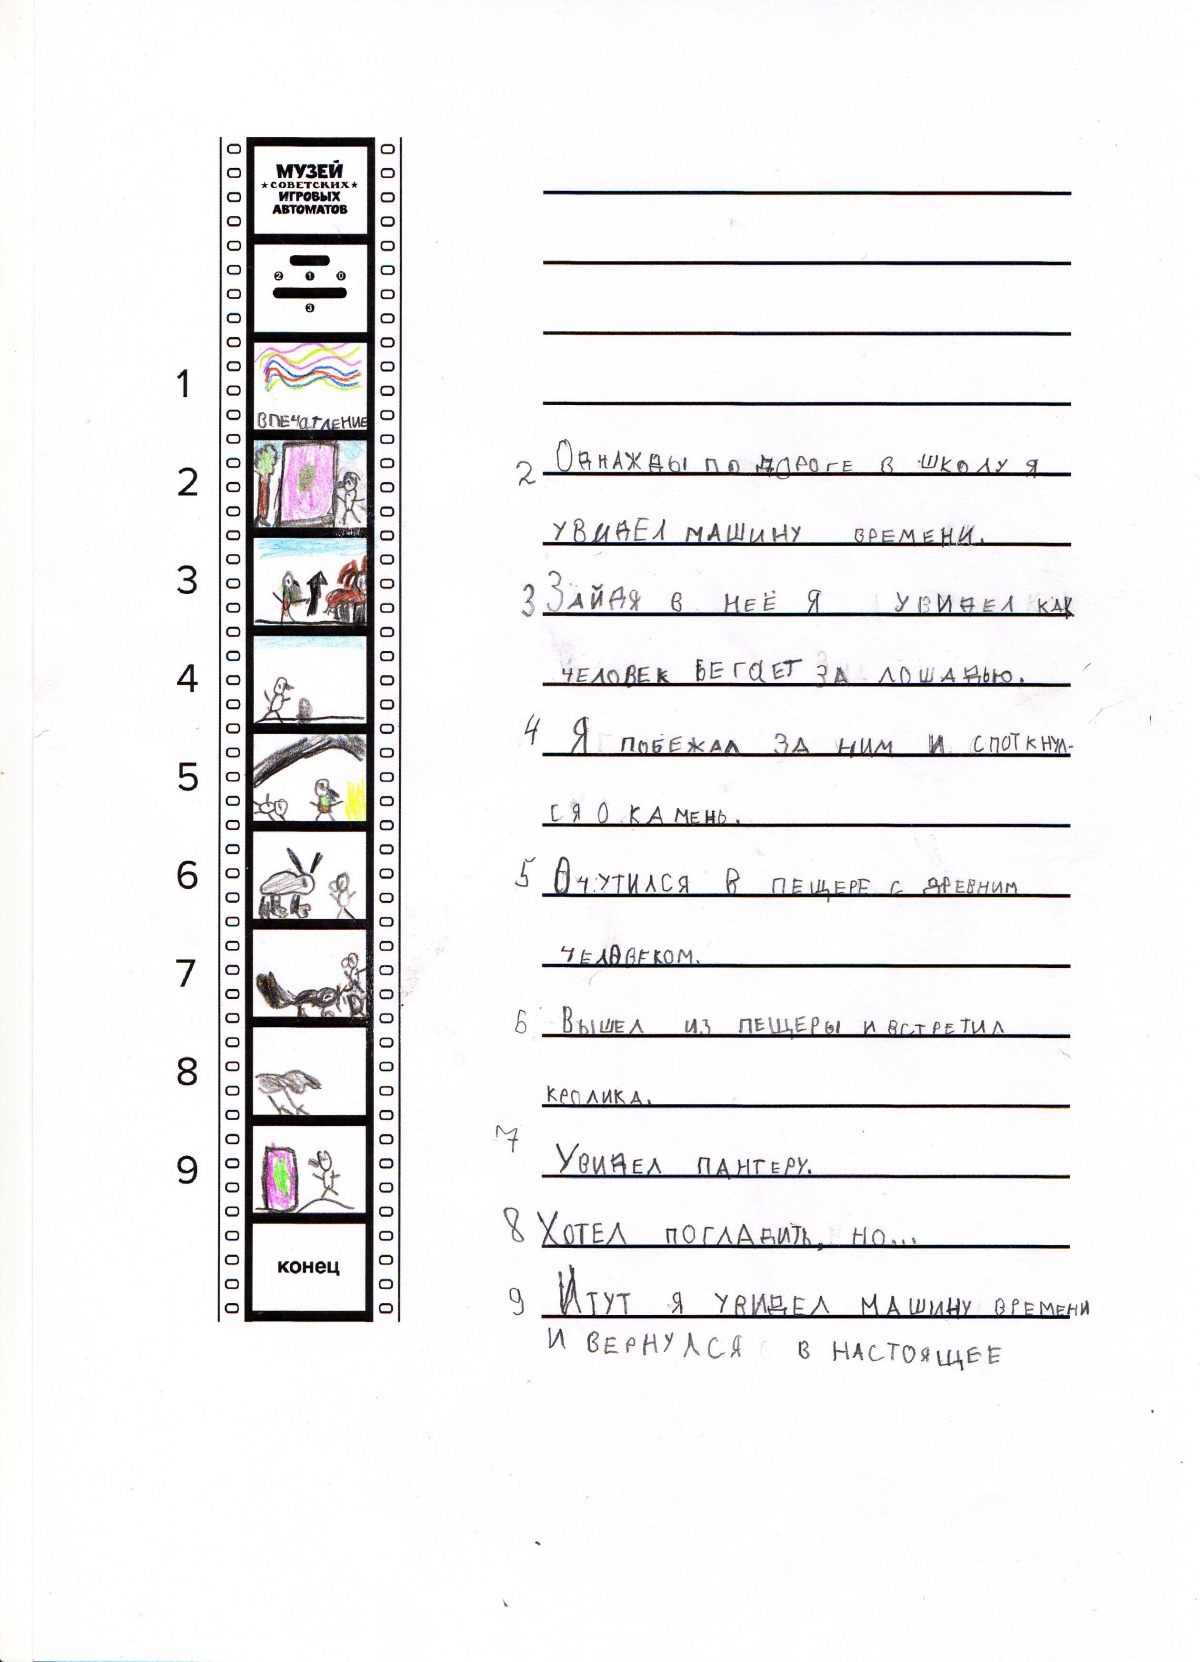 МУЗЕЙ
★СОВЕТСКИХ★
ИГРОВЫХ
АВТОМАТОВ
2 1 0
3
1
ВПЕЧАТЛЕНИЕ
2
3
4
5
6
7
8
9
конец
2 Однажды по дороге в школу я
увидел машину времени.
3 Зайдя в неё я увидел как
человек бегает за лошадью.
4 Я побежал за ним и споткнул-
ся о камень.
5 Очутился в пещере с древним
человеком.
6 Вышел из пещеры и встретил
кролика.
7
Увидел пантеру.
8 Хотел погладить, но...
9 И тут я увидел машину времени
и вернулся в настоящее